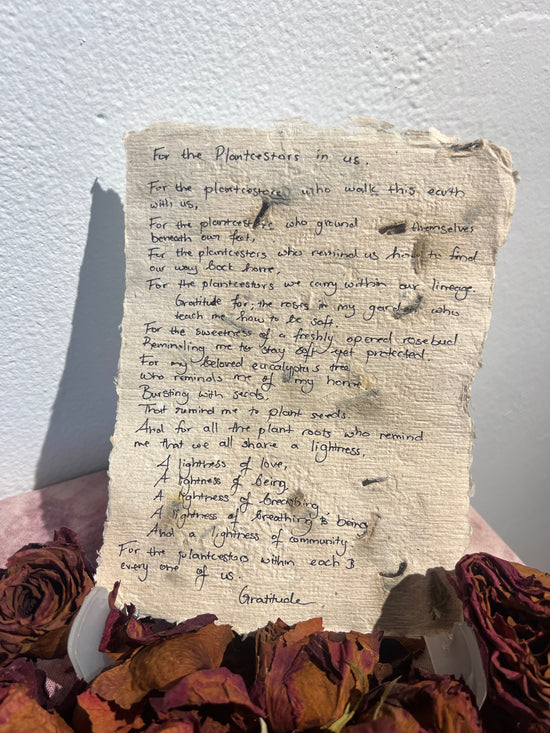 For the Plantcestors in us.
For the plantcestors who walk this earth
with us,
For the plantcestors who ground themselves
beneath our feet,
For the plantcestors who remind us how to find
our way back home,
For the plantcestors we carry within our lineage.
Gratitude for; the roses in my garden who
teach me how to be soft.
For the sweetness of a freshly opened rosebud
Reminding me to stay soft yet protected.
For my beloved eucalyptus tree
who reminds me of my home
Bursting with seeds.
That remind me to plant seeds.
And for all the plant roots who remind
me that we all share a lightness,
A lightness of love,
A lightness of being,
A lightness of breathing
A lightness of breathing & being
And a lightness of community
For the plantcestors within each &
every one of us.
Gratitude